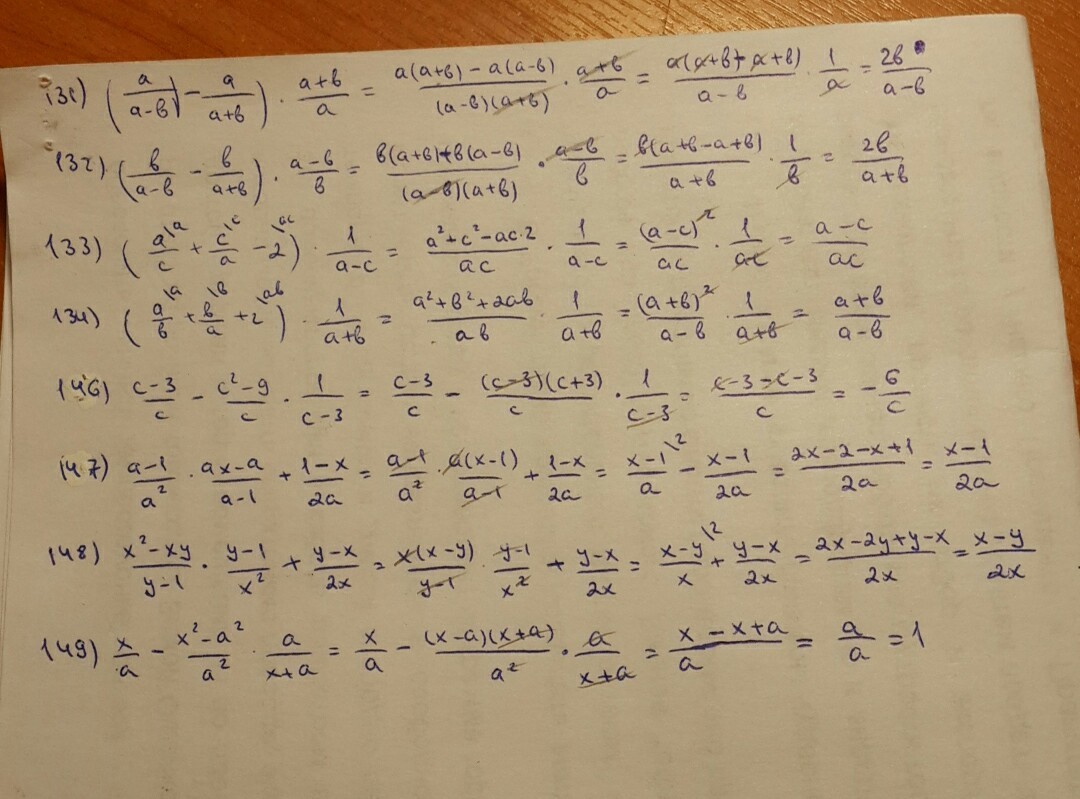 131) (a/(a-b) - a/(a+b)) · (a+b)/a = (a(a+b) - a(a-b))/((a-b)(a+b)) · (a+b)/a = (a(a+b)-a+b))/(a-b) · 1/a = 2b/(a-b)
132) (b/(a-b) - b/(a+b)) · (a-b)/b = (b(a+b)+b(a-b))/((a-b)(a+b)) · (a-b)/b = (b(a+b-a+b))/(a+b) · 1/b = 2b/(a+b)
133) (a/c \a + c/a \c - 2 \ac) · 1/(a-c) = (a²+c²-ac·2)/(ac) · 1/(a-c) = (a-c)²/(ac) · 1/(ac) = (a-c)/(ac)
134) (a/b \a + b/a \b + 2 \ab) · 1/(a+b) = (a²+b²+2ab)/(ab) · 1/(a+b) = (a+b)²/(a-b) · 1/(a+b) = (a+b)/(a-b)
146) (c-3)/c - (c²-9)/c · 1/(c-3) = (c-3)/c - ((c-3)(c+3))/c · 1/(c-3) = (c-3-c-3)/c = -6/c
147) (a-1)/a² · (ax-a)/(a-1) + (1-x)/(2a) = (a-1)/a² · (a(x-1))/(a-1) + (1-x)/(2a) = (x-1)/a \2 - (x-1)/(2a) = (2x-2-x+1)/(2a) = (x-1)/(2a)
148) (x²-xy)/(y-1) · (y-1)/x² + (y-x)/(2x) = (x(x-y))/(y-1) · (y-1)/x² + (y-x)/(2x) = (x-y)/x \2 + (y-x)/(2x) = (2x-2y+y-x)/(2x) = (x-y)/(2x)
149) x/a - (x²-a²)/a² · a/(x+a) = x/a - ((x-a)(x+a))/a² · a/(x+a) = (x-x+a)/a = a/a = 1